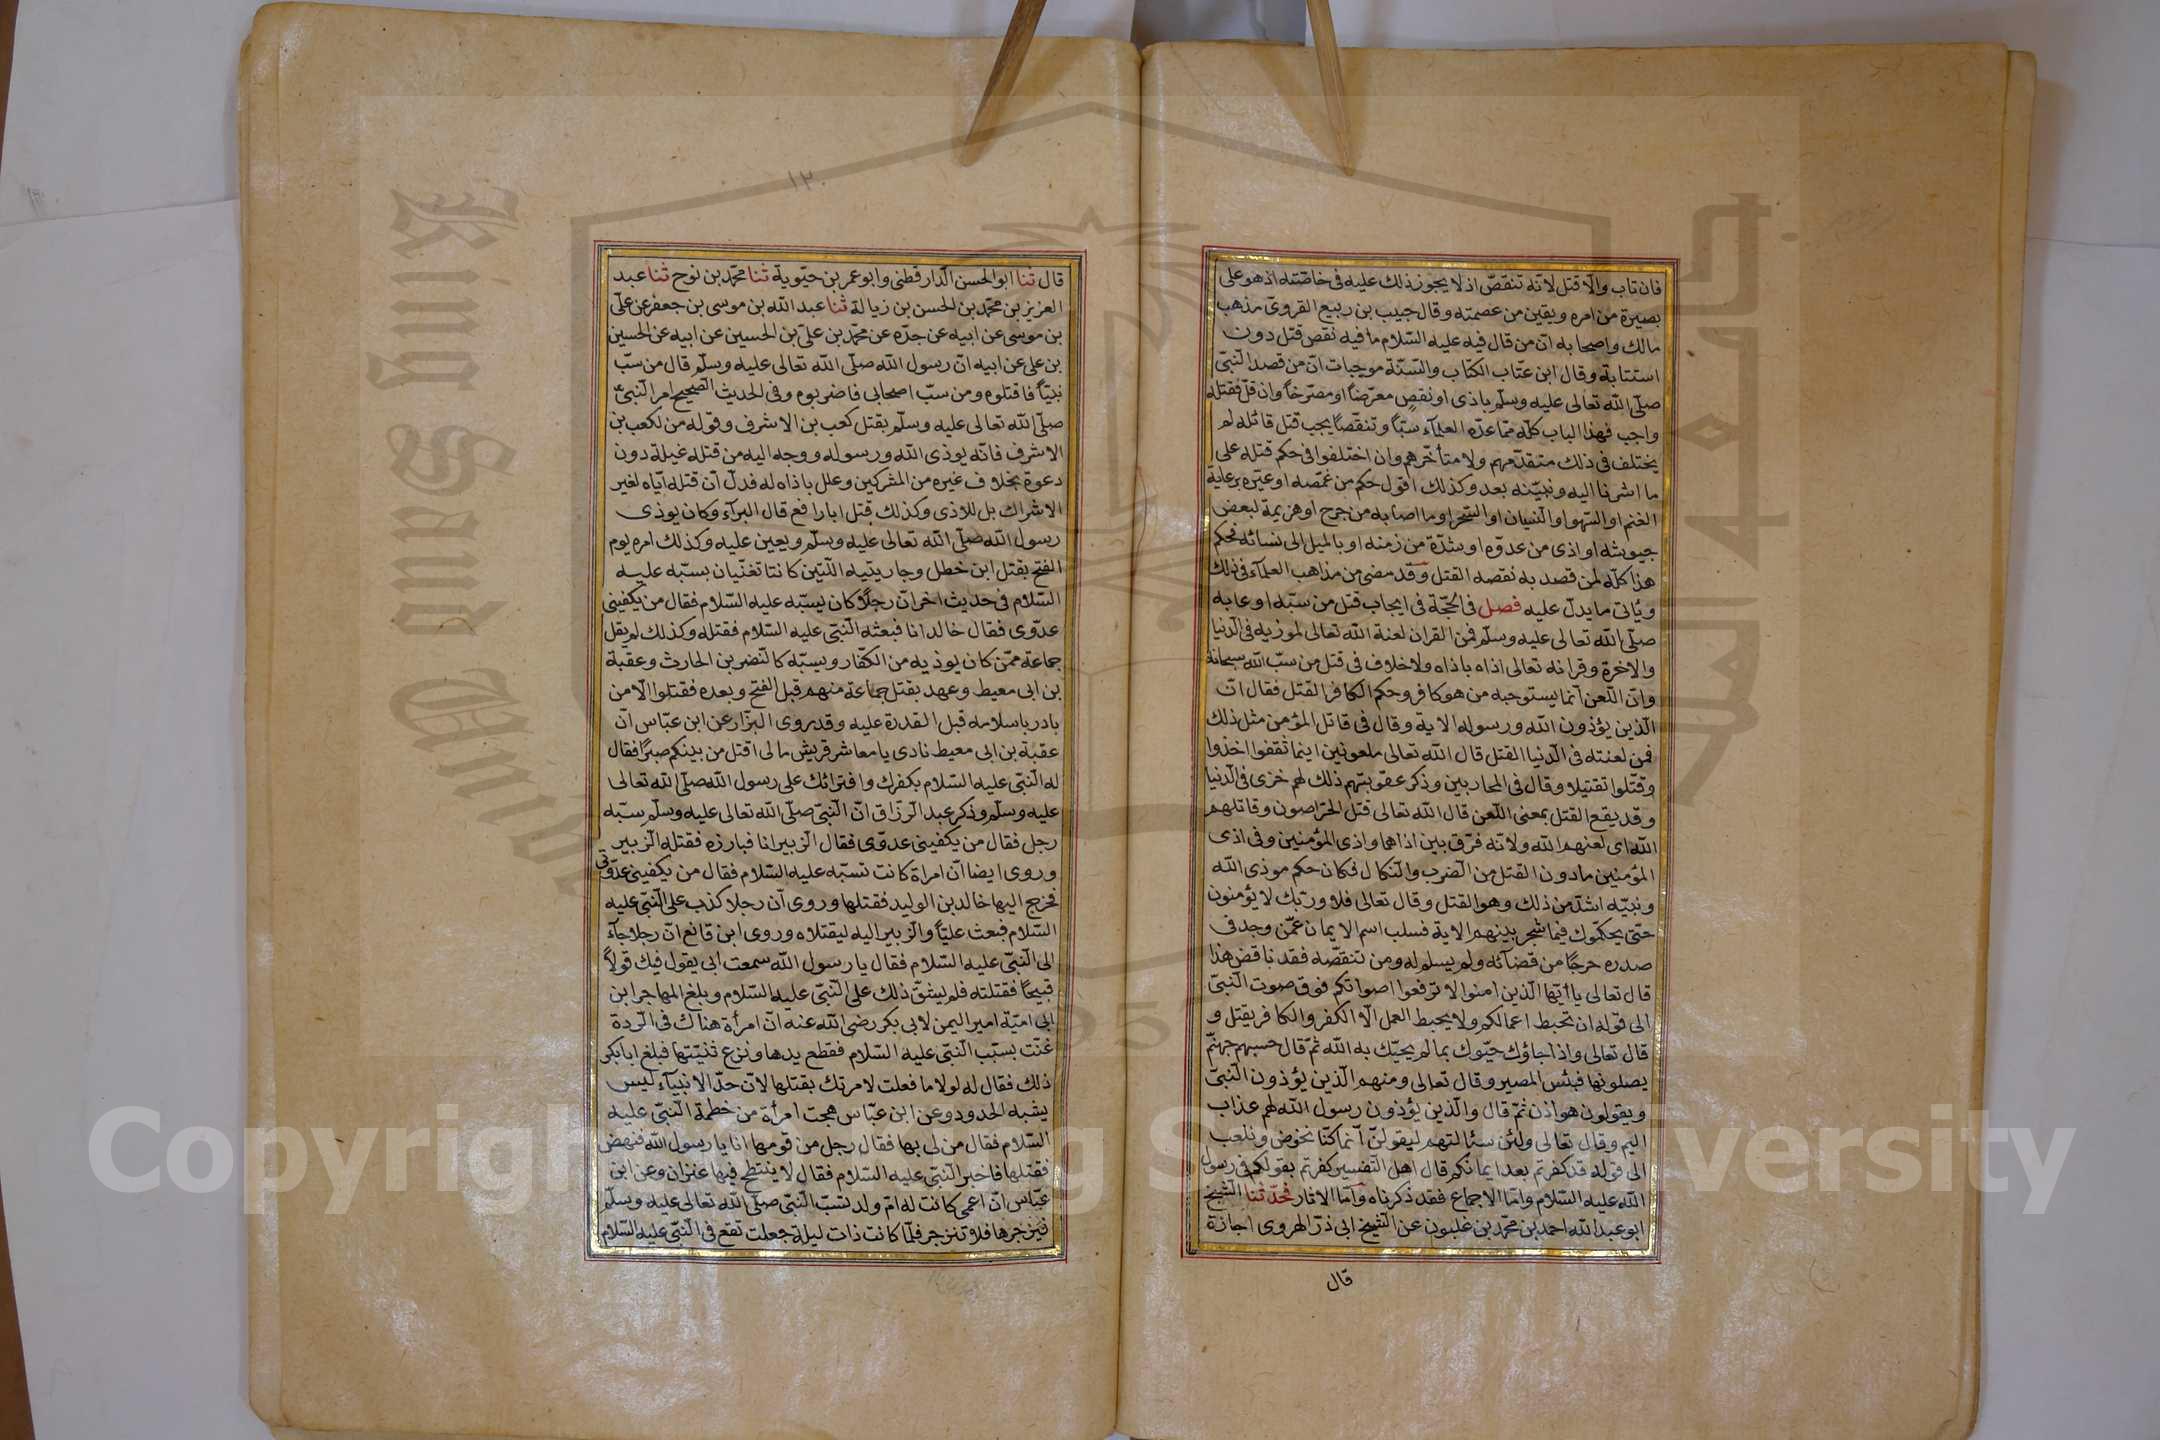 فان تاب والّا قتل لانّه تنقصّ اذ لا يجوز ذلك عليه فى خاصّته اذ هو على
بصيرة من امره ويقين من عصمته وقال حبيب بن ربيع القروىّ مذهب
مالك واصحابه انّ من قال فيه عليه السّلام ما فيه نقص قتل دون
استتابة وقال ابن عتّاب الكتاب والسّنّة موجبات انّ من قصد النّبىّ
صلّى اللّه تعالى عليه وسلّم باذى او نقص معرّضاً او مصرّحاً وان قلّ فقتله
واجب فهذا الباب كلّه ممّا عدّه العلمآء سبّاً وتنقّصاً يجب قتل قائله لم
يختلف فى ذلك متقدّمهم ولا متأخّرهم وان اختلفوا فى حكم قتله على
ما اشرنا اليه ونبيّنه بعد وكذلك اقول حكم من غمّصه او عيّره برعاية
الغنم او السّهو او النّسيان او السّحر او ما اصابه من جرح او هزيمة لبعض
جيوشه او اذى من عدوّه او شدّة من زمنه او بالميل الى نسائه فحكم
هذا كلّه لمن قصد به نقصه القتل وقد مضى من مذاهب العلمآء فى ذلك
ويأتى ما يدلّ عليه فصل فى الحجّة فى ايجاب قتل من سبّه او عابه
صلّى اللّه تعالى عليه وسلّم فمن القران لعنة اللّه تعالى لموزيه فى الدّنيا
والاخرة وقرانه تعالى اذاه باذاه ولا خلاف فى قتل من سبّ اللّه سبحانه
وانّ اللّعن انّما يستوجبه من هو كافر وحكم الكافر القتل فقال انّ
الّذين يؤذون اللّه ورسوله الاية وقال فى قاتل المؤمن مثل ذلك
فمن لعنته فى الدّنيا القتل قال اللّه تعالى ملعونين اينما ثقفوا اخذوا
وقتّلوا تقتيلا وقال فى المحاربين وذكر عقوبتهم ذلك لهم خزى فى الدّنيا
وقد يقع القتل بمعنى اللّعن قال اللّه تعالى قتل الخرّاصون وقاتلهم
اللّه اى لعنهم اللّه ولانّه فرّق بين اذاهما واذى المؤمنين وفى اذى
المؤمنين ما دون القتل من الضّرب والنّكال فكان حكم موذى اللّه
ونبيّه اشدّ من ذلك وهو القتل وقال تعالى فلا وربّك لا يؤمنون
حتّى يحكّموك فيما شجر بينهم الاية فسلب اسم الايمان عمّن وجد فى
صدره حرجاً من قضآئه ولم يسلم له ومن تنقّصه فقد ناقض هذا
قال تعالى يا ايّها الّذين امنوا لا ترفعوا اصواتكم فوق صوت النّبىّ
الى قوله ان تحبط اعمالكم ولا يحبط العمل الّا الكفر والكافر يقتل و
قال تعالى واذا جاؤك حيّوك بما لم يحيّك به اللّه ثمّ قال حسبهم جهنّم
يصلونها فبئس المصير وقال تعالى ومنهم الّذين يؤذون النّبىّ
ويقولون هو اذن ثمّ قال والّذين يؤذون رسول اللّه لهم عذاب
اليم وقال تعالى ولئن سئالتهم ليقولنّ انّما كنّا نخوض ونلعب
الى قوله قد كفرتم بعد ايمانكم قال اهل التّفسير كفرتم بقولكم فى رسول
اللّه عليه السّلام وامّا الاجماع فقد ذكرناه وامّا الاثار فحدّثنا الشّيخ
ابو عبد اللّه احمد بن محمّد بن غلبون عن الشّيخ ابى ذرّ الهروى اجازة
قال
١٢٠
قال ثنا ابو الحسن الدّارقطنى وابو عمر بن حيّوية ثنا محمّد بن نوح ثنا عبد
العزيز بن محمّد بن الحسن بن زيالة ثنا عبد اللّه بن موسى بن جعفر عن علّى
بن موسى عن ابيه عن جدّه عن محمّد بن علىّ بن الحسين عن ابيه عن الحسين
بن على عن ابيه انّ رسول اللّه صلّى اللّه تعالى عليه وسلّم قال من سبّ
نبيّاً فاقتلوه ومن سبّ اصحابى فاضربوه وفى الحديث الصّحيح امر النّبىّ
صلّى اللّه تعالى عليه وسلّم بقتل كعب بن الاشرف وقوله من لكعب بن
الاشرف فانّه يوذى اللّه ورسوله ووجه اليه من قتله غيلة دون
دعوة بخلاف غيره من المشركين وعلل باذاه له فدلّ انّ قتله ايّاه لغير
الاشراك بل للاذى وكذلك قتل ابا رافع قال البرآء وكان يوذى
رسول اللّه صلّى اللّه تعالى عليه وسلّم ويعين عليه وكذلك امره يوم
الفتح بقتل ابن خطل وجاريتيه اللّتين كانتا تغنّيان بسبّه عليه
السّلام فى حديث اخر انّ رجلاً كان يسبّه عليه السّلام فقال من يكفينى
عدوّى فقال خالد انا فبعثه النّبىّ عليه السّلام فقتله وكذلك لم يقل
جماعة ممّن كان يوذيه من الكفّار ويسبّه كالنّضر بن الحارث وعقبة
بن ابى معيط وعهد بقتل جماعة منهم قبل الفتح وبعده فقتلوا الّا من
بادر باسلامه قبل القدرة عليه وقد روى البزّار عن ابن عبّاس انّ
عقبة بن ابى معيط نادى يا معاشر قريش مالى اقتل من بينكم صبرًا فقال
له النّبى عليه السّلام بكفرك وافترائك على رسول اللّه صلّى اللّه تعالى
عليه وسلّم وذكر عبد الرّزّاق انّ النّبىّ صلّى اللّه تعالى عليه وسلّم سبّه
رجل فقال من يكفينى عدوّى فقال الزّبير انا فبارزه فقتله الزّبير
وروى ايضا انّ امراة كانت تسبّه عليه السّلام فقال من يكفينى عدوّتى
فخرج اليها خالد بن الوليد فقتلها وروى انّ رجلا كذب على النّبى عليه
السّلام فبعث عليّاً والزّبير اليه ليقتلاه وروى ابن قانع انّ رجلا جآء
الى النّبىّ عليه السّلام فقال يا رسول اللّه سمعت ابى يقول فيك قولاً
قبيحاً فقتلته فلم يشقّ ذلك على النّبىّ عليه السّلام وبلغ المهاجر ابن
ابى اميّة امير اليمن لابى بكر رضى اللّه عنه انّ امرأة هناك فى الرّدة
غنّت بسبّب النّبى عليه السّلام فقطع يدها ونزع ثنيّتها فبلغ ابا بكر
ذلك فقال له لولا ما فعلت لامرتك بقتلها لانّ حدّ الانبيآء ليس
يشبه الحدود وعن ابن عبّاس هجت امرأة من خطمة النّبى عليه
السّلام فقال من لى بها فقال رجل من قومها انا يا رسول اللّه فنهض
فقتلها فاخبر النّبى عليه السّلام فقال لا ينتطح فيها عنزان وعن ابن
عبّاس انّ اعمى كانت له امّ ولد تسبّ النّبىّ صلّى اللّه تعالى عليه وسلّم
فيزجرها فلا تنزجر فلمّا كانت ذات ليلة جعلت تقع فى النّبىّ عليه السّلام